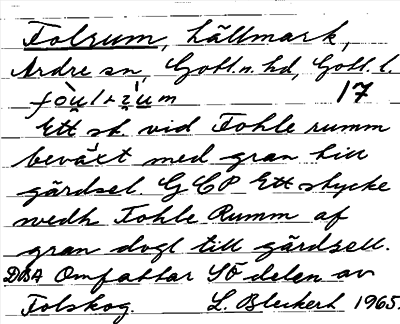 Folrum, hällmark,
Ardre sn, Gotl. n. hd, Gotl. l.
fòu̲l+i̲u̲m 17
Ett sk vid Fohle rumm
beväxt med gran till
gärdsel. GCP Ett stycke
wedh Fohle Rumm af
gran dogl till gärdsell.
DBA Omfattar SÖ delen av
Folskog. L. Bleckert 1965.